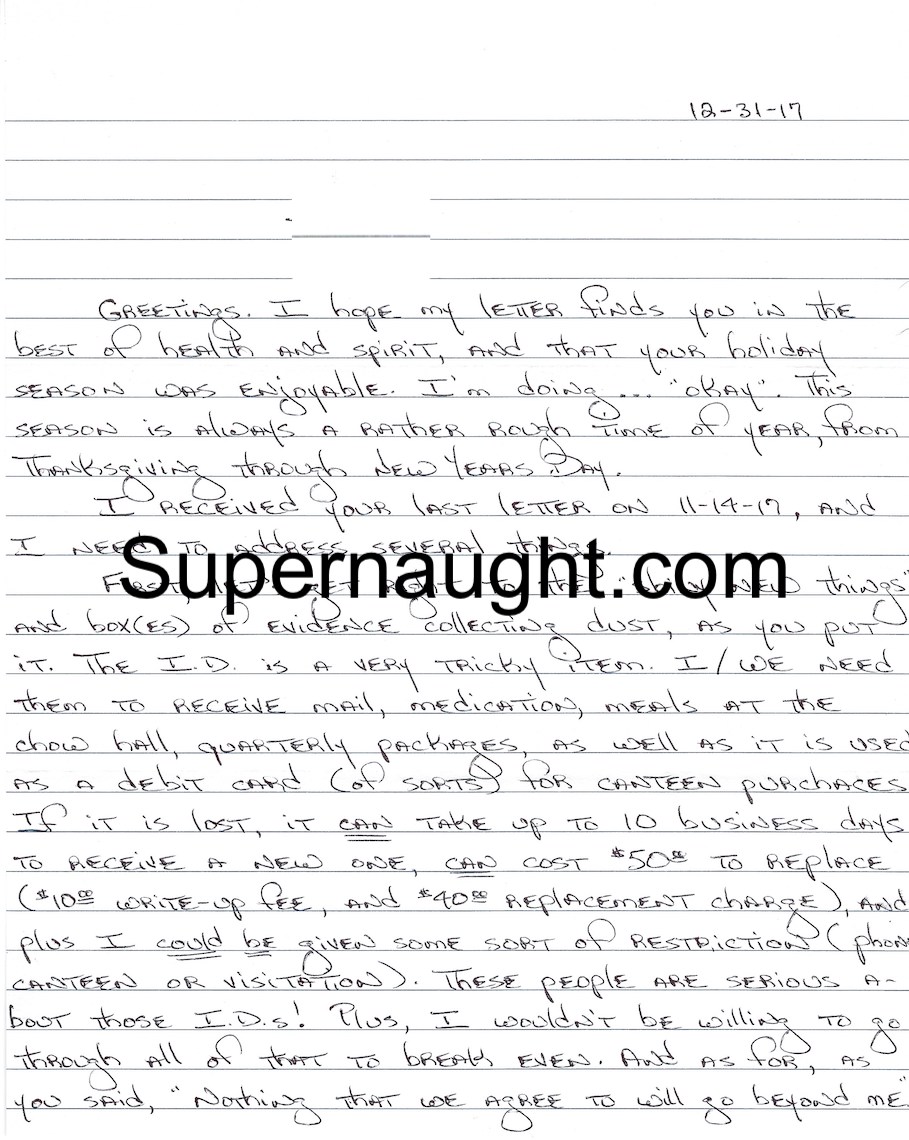 12-31-17
Greetings. I hope my letter finds you in the
best of health and spirit, and that your holiday
season was enjoyable. I'm doing... "okay". This
season is always a rather rough time of year, from
Thanksgiving through New Years Day.
I received your last letter on 11-14-17, and
I need to address several things.
Supernaught.com
First, new things"
and box(es) of evidence collecting dust, as you put
it. The I.D. is a very tricky item. I/we need
them to receive mail, medication, meals at the
chow hall, quarterly packages, as well as it is used
as a debit card (of sorts) for canteen purchaces
If it is lost, it can take up to 10 business days
to receive a new one, can cost $50.00 to replace
($10.00 write-up fee, and $40.00 replacement charge), and
plus I could be given some sort of restriction (phon
canteen or visitation). These people are serious a-
bout those I.D.s! Plus, I wouldn't be willing to go
through all of that to break even. And as for, as
you said, "Nothing that we agree to will go beyond me"